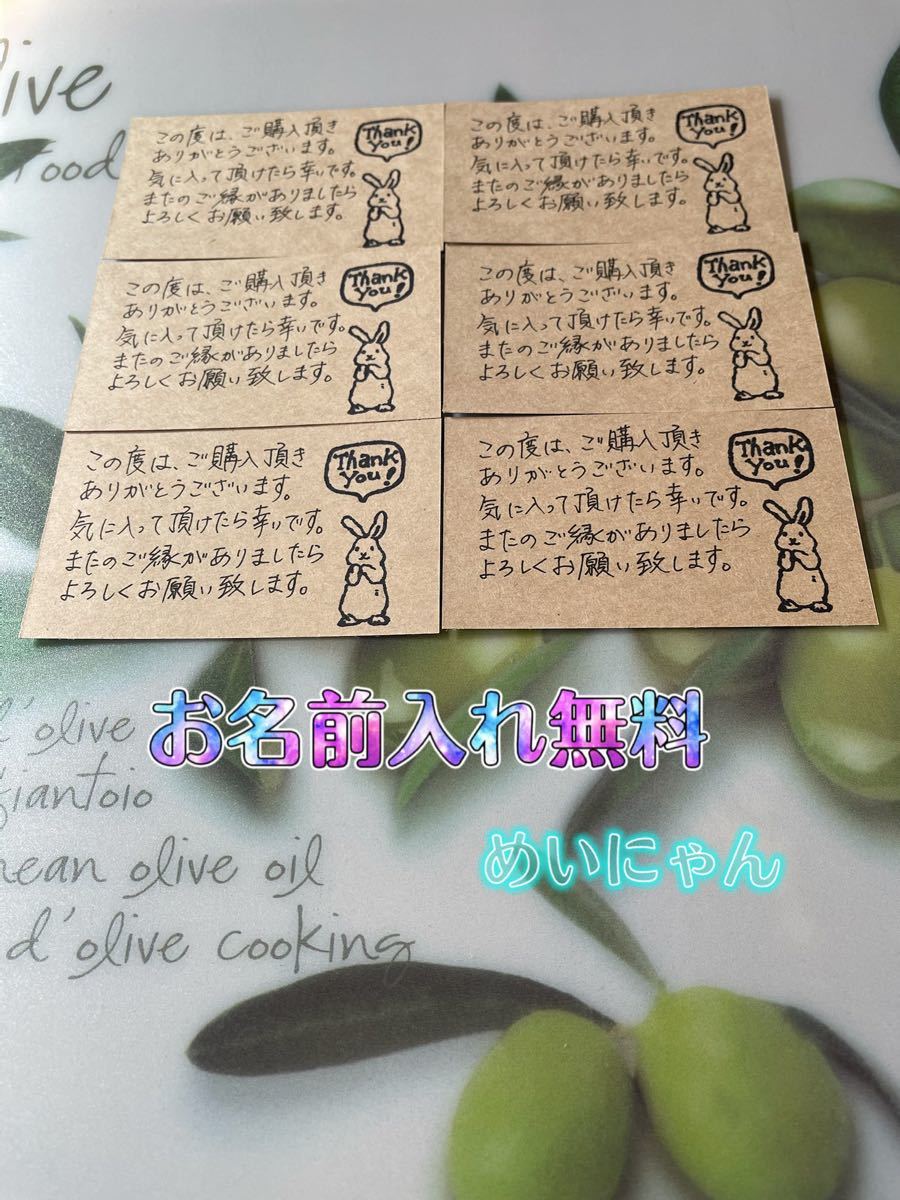 live
food
この度は、ご購入頂き
ありがとうございます。
気に入って頂けたら幸いです。
またのご縁がありましたら
よろしくお願い致します。
Thank
you!
この度は、ご購入頂き
ありがとうございます。
気に入って頂けたら幸いです。
またのご縁がありましたら
よろしくお願い致します。
Thank
you!
この度は、ご購入頂き
ありがとうございます。
気に入って頂けたら幸いです。
またのご縁がありましたら
よろしくお願い致します。
Thank
you!
この度は、ご購入頂き
ありがとうございます。
気に入って頂けたら幸いです。
またのご縁がありましたら
よろしくお願い致します。
Thank
you!
この度は、ご購入頂き
ありがとうございます。
気に入って頂けたら幸いです。
またのご縁がありましたら
よろしくお願い致します。
Thank
you!
この度は、ご購入頂き
ありがとうございます。
気に入って頂けたら幸いです。
またのご縁がありましたら
よろしくお願い致します。
Thank
you!
お名前入れ無料
めいにゃん
d'olive
giantoio
nean olive oil
d'olive cooking